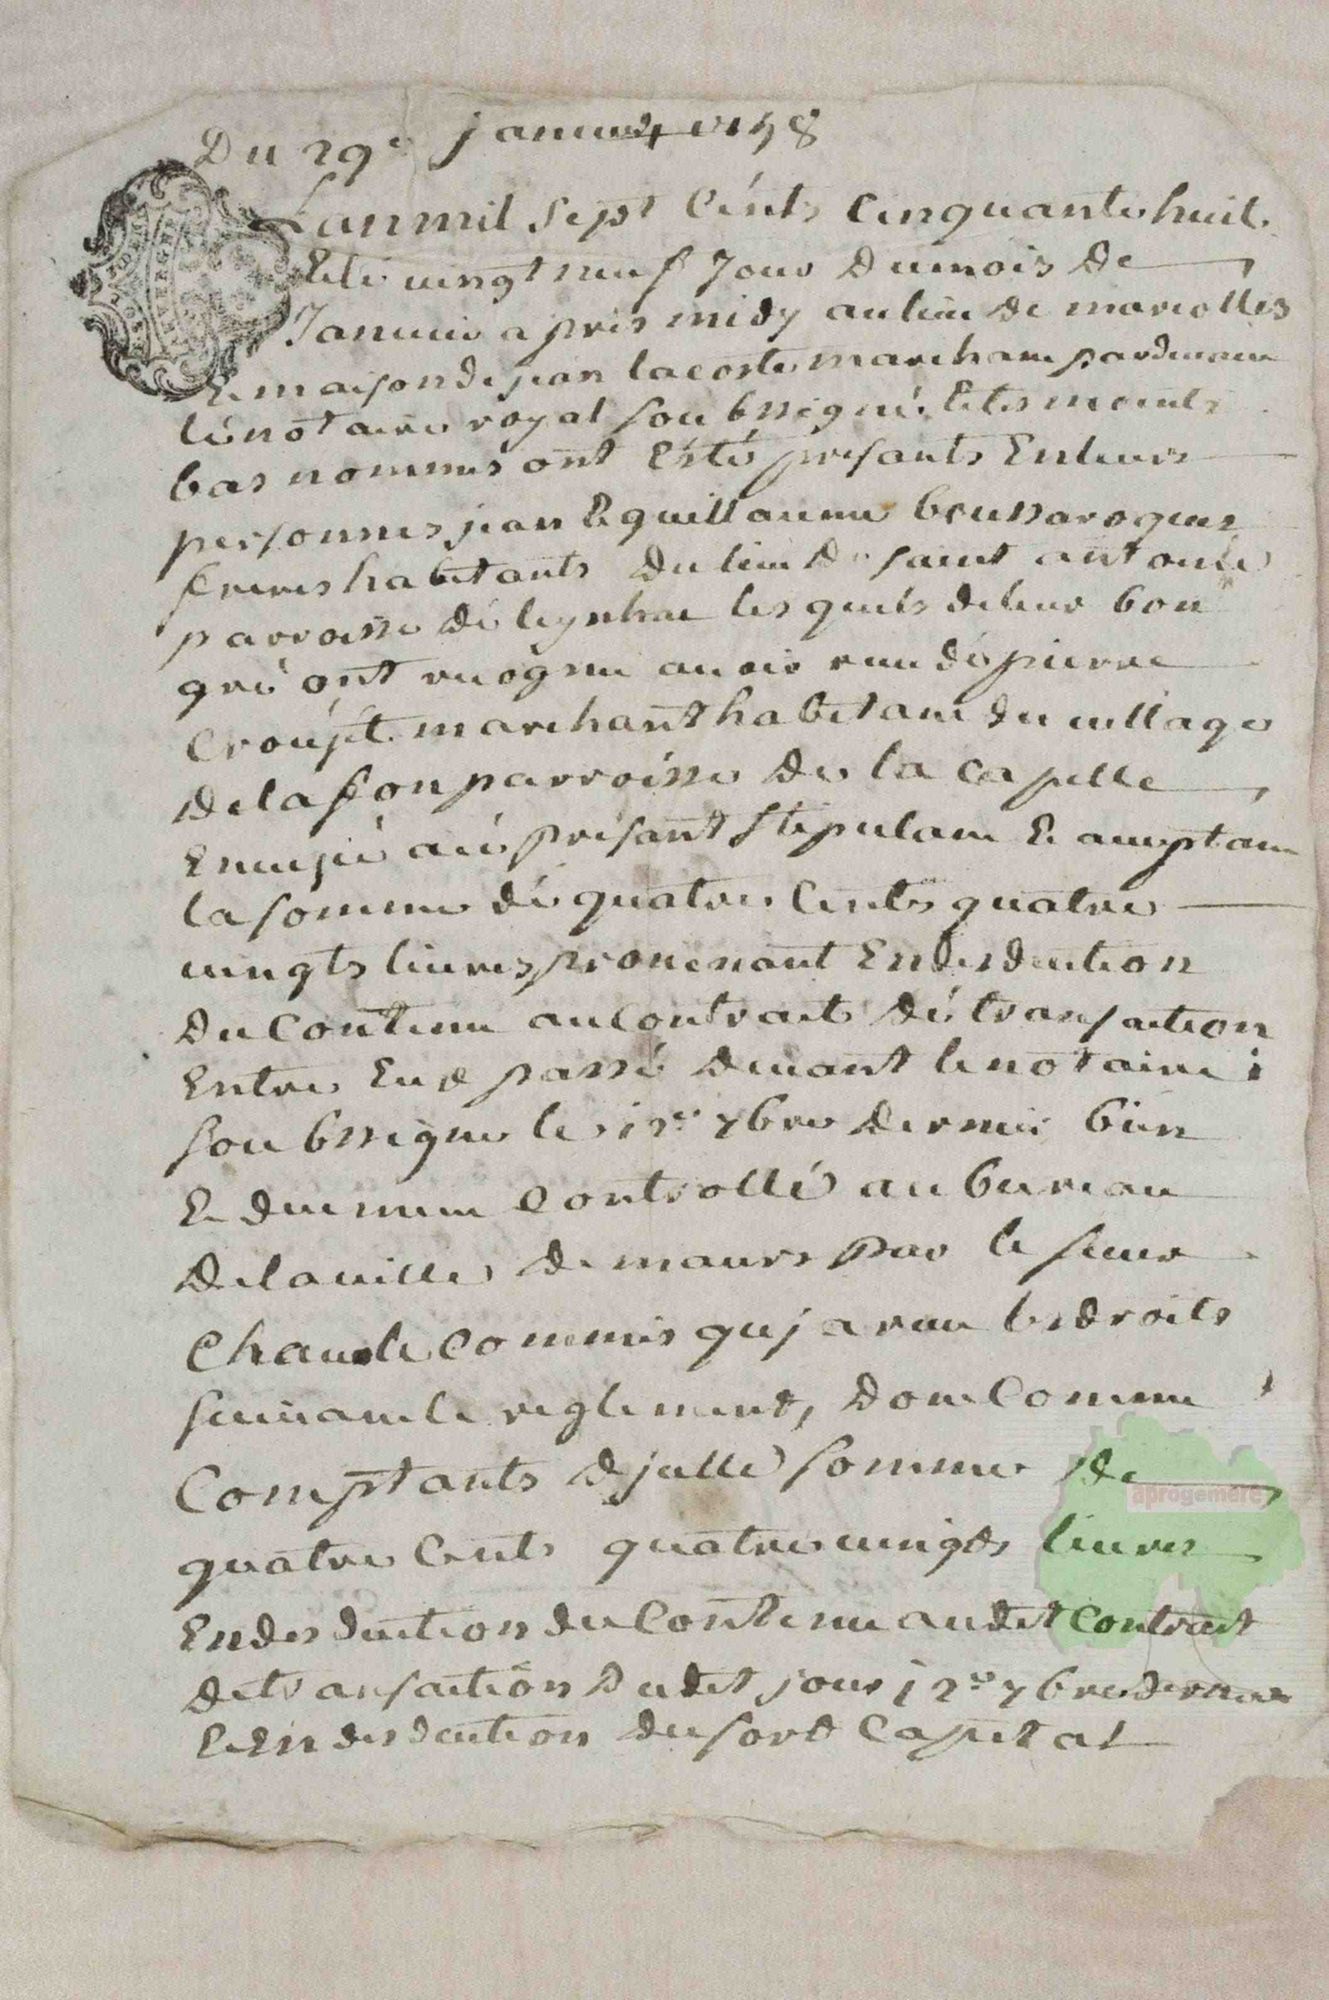 Du 29e janvier 1758
Lan mil sept Cénts Cinquante huit
Et lé vingt neuf Jour du mois de
Janvier apres midy au lieu de marcolles
Et maison de jean lacoste marchant pardevant
lé notaire royal soubssigné Et tesmoints
bas nommes ont Ésté présants En leurs
personnes jean Et guillaume boussaroques
freres habitants du lieu de saint antoine
parroisse dé leynhac lesquels de leur bon
gré ont recognu avoir reçu dé pierre
marchant habitant du village
de lafon parroisse de la capelle
présant stipulant Et acceptant
la somme dé quatre Cents quatre
vingts livres provenant En desduction
du Contenu au Contrait dé transaction
Entre Eux passé devant le notaire
soubssigne le 12e 7bre dernier bien
Et duement Controllé au bureau
de la ville de maurs par le sieur
Chaule Commis quj a reçu les droits
suivant le reglement, dont Comme
Comptants djcelle somme de
quatre Cents quatre vingts livres
En desduction du Contenu au dit Contrait
de transaction du dit jour 12e 7bre dernier
Et En desduction du sort Capital
aprogemere